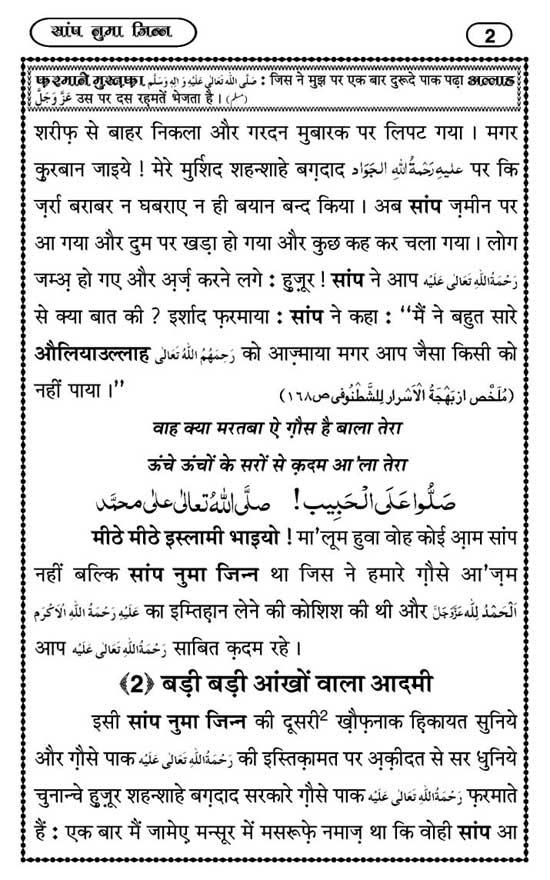 सांप नुमा जिन्न
2
फ़रमाने मुस्त़फ़ा صَلَّى اللهُ تَعَالٰى عَلَيْهِ وَاٰلِهٖ وَسَلَّم : जिस ने मुझ पर एक बार दुरूदे पाक पढ़ा अल्लाह
عَزَّ وَجَلَّ उस पर दस रह़मतें भेजता है । (مسلم)
शरीफ़ से बाहर निकला और गरदन मुबारक पर लिपट गया । मगर
क़ुरबान जाइये ! मेरे मुर्शिद शहन्शाहे बग़दाद عَلَيْهِ رَحْمَةُ اللهِ الْجَوَاد पर कि
ज़र्रा बराबर न घबराए न ही बयान बन्द किया । अब सांप ज़मीन पर
आ गया और दुम पर खड़ा हो गया और कुछ कह कर चला गया । लोग
जम्अ़ हो गए और अ़र्ज़ करने लगे : हुज़ूर ! सांप ने आप رَحْمَةُ اللهِ تَعَالٰى عَلَيْهِ
से क्या बात की ? इर्शाद फ़रमाया : सांप ने कहा : ‘‘मैं ने बहुत सारे
औलियाउल्लाह رَحِمَهُمُ اللهُ تَعَالٰى को आज़्माया मगर आप जैसा किसी को
नहीं पाया ।’’ (مُلَخَّص از بَهْجَةُ الْاَسْرار لِلشَّطْنُوفى ص١٦٨)
वाह क्या मरतबा ऐ ग़ौस है बाला तेरा
ऊंचे ऊंचों के सरों से क़दम आ'ला तेरा
صَلُّوا عَلَى الْحَبِيب! صلَّى اللهُ تعالٰى على محمَّد
मीठे मीठे इस्लामी भाइयो ! मा'लूम हुवा वोह कोई आ़म सांप
नहीं बल्कि सांप नुमा जिन्न था जिस ने हमारे ग़ौसे आ'ज़म
عَلَيْهِ رَحْمَةُ اللهِ الْاَكْرَم का इम्तिह़ान लेने की कोशिश की थी और اَلْحَمْدُ لِلّٰه عَزَّوَجَلَّ
आप رَحْمَةُ اللهِ تَعَالٰى عَلَيْه साबित क़दम रहे ।
﴾2﴿ बड़ी बड़ी आंखों वाला आदमी
इसी सांप नुमा जिन्न की दूसरी² ख़ौफ़नाक ह़िकायत सुनिये
और ग़ौसे पाक رَحْمَةُ اللهِ تَعَالٰى عَلَيْه की इस्तिक़ामत पर अ़क़ीदत से सर धुनिये
चुनान्चे हुज़ूर शहन्शाहे बग़दाद सरकारे ग़ौसे पाक رَحْمَةُ اللهِ تَعَالٰى عَلَيْه फ़रमाते
हैं : एक बार मैं जामेए़ मन्सूर में मसरूफ़े नमाज़ था कि वोही सांप आ